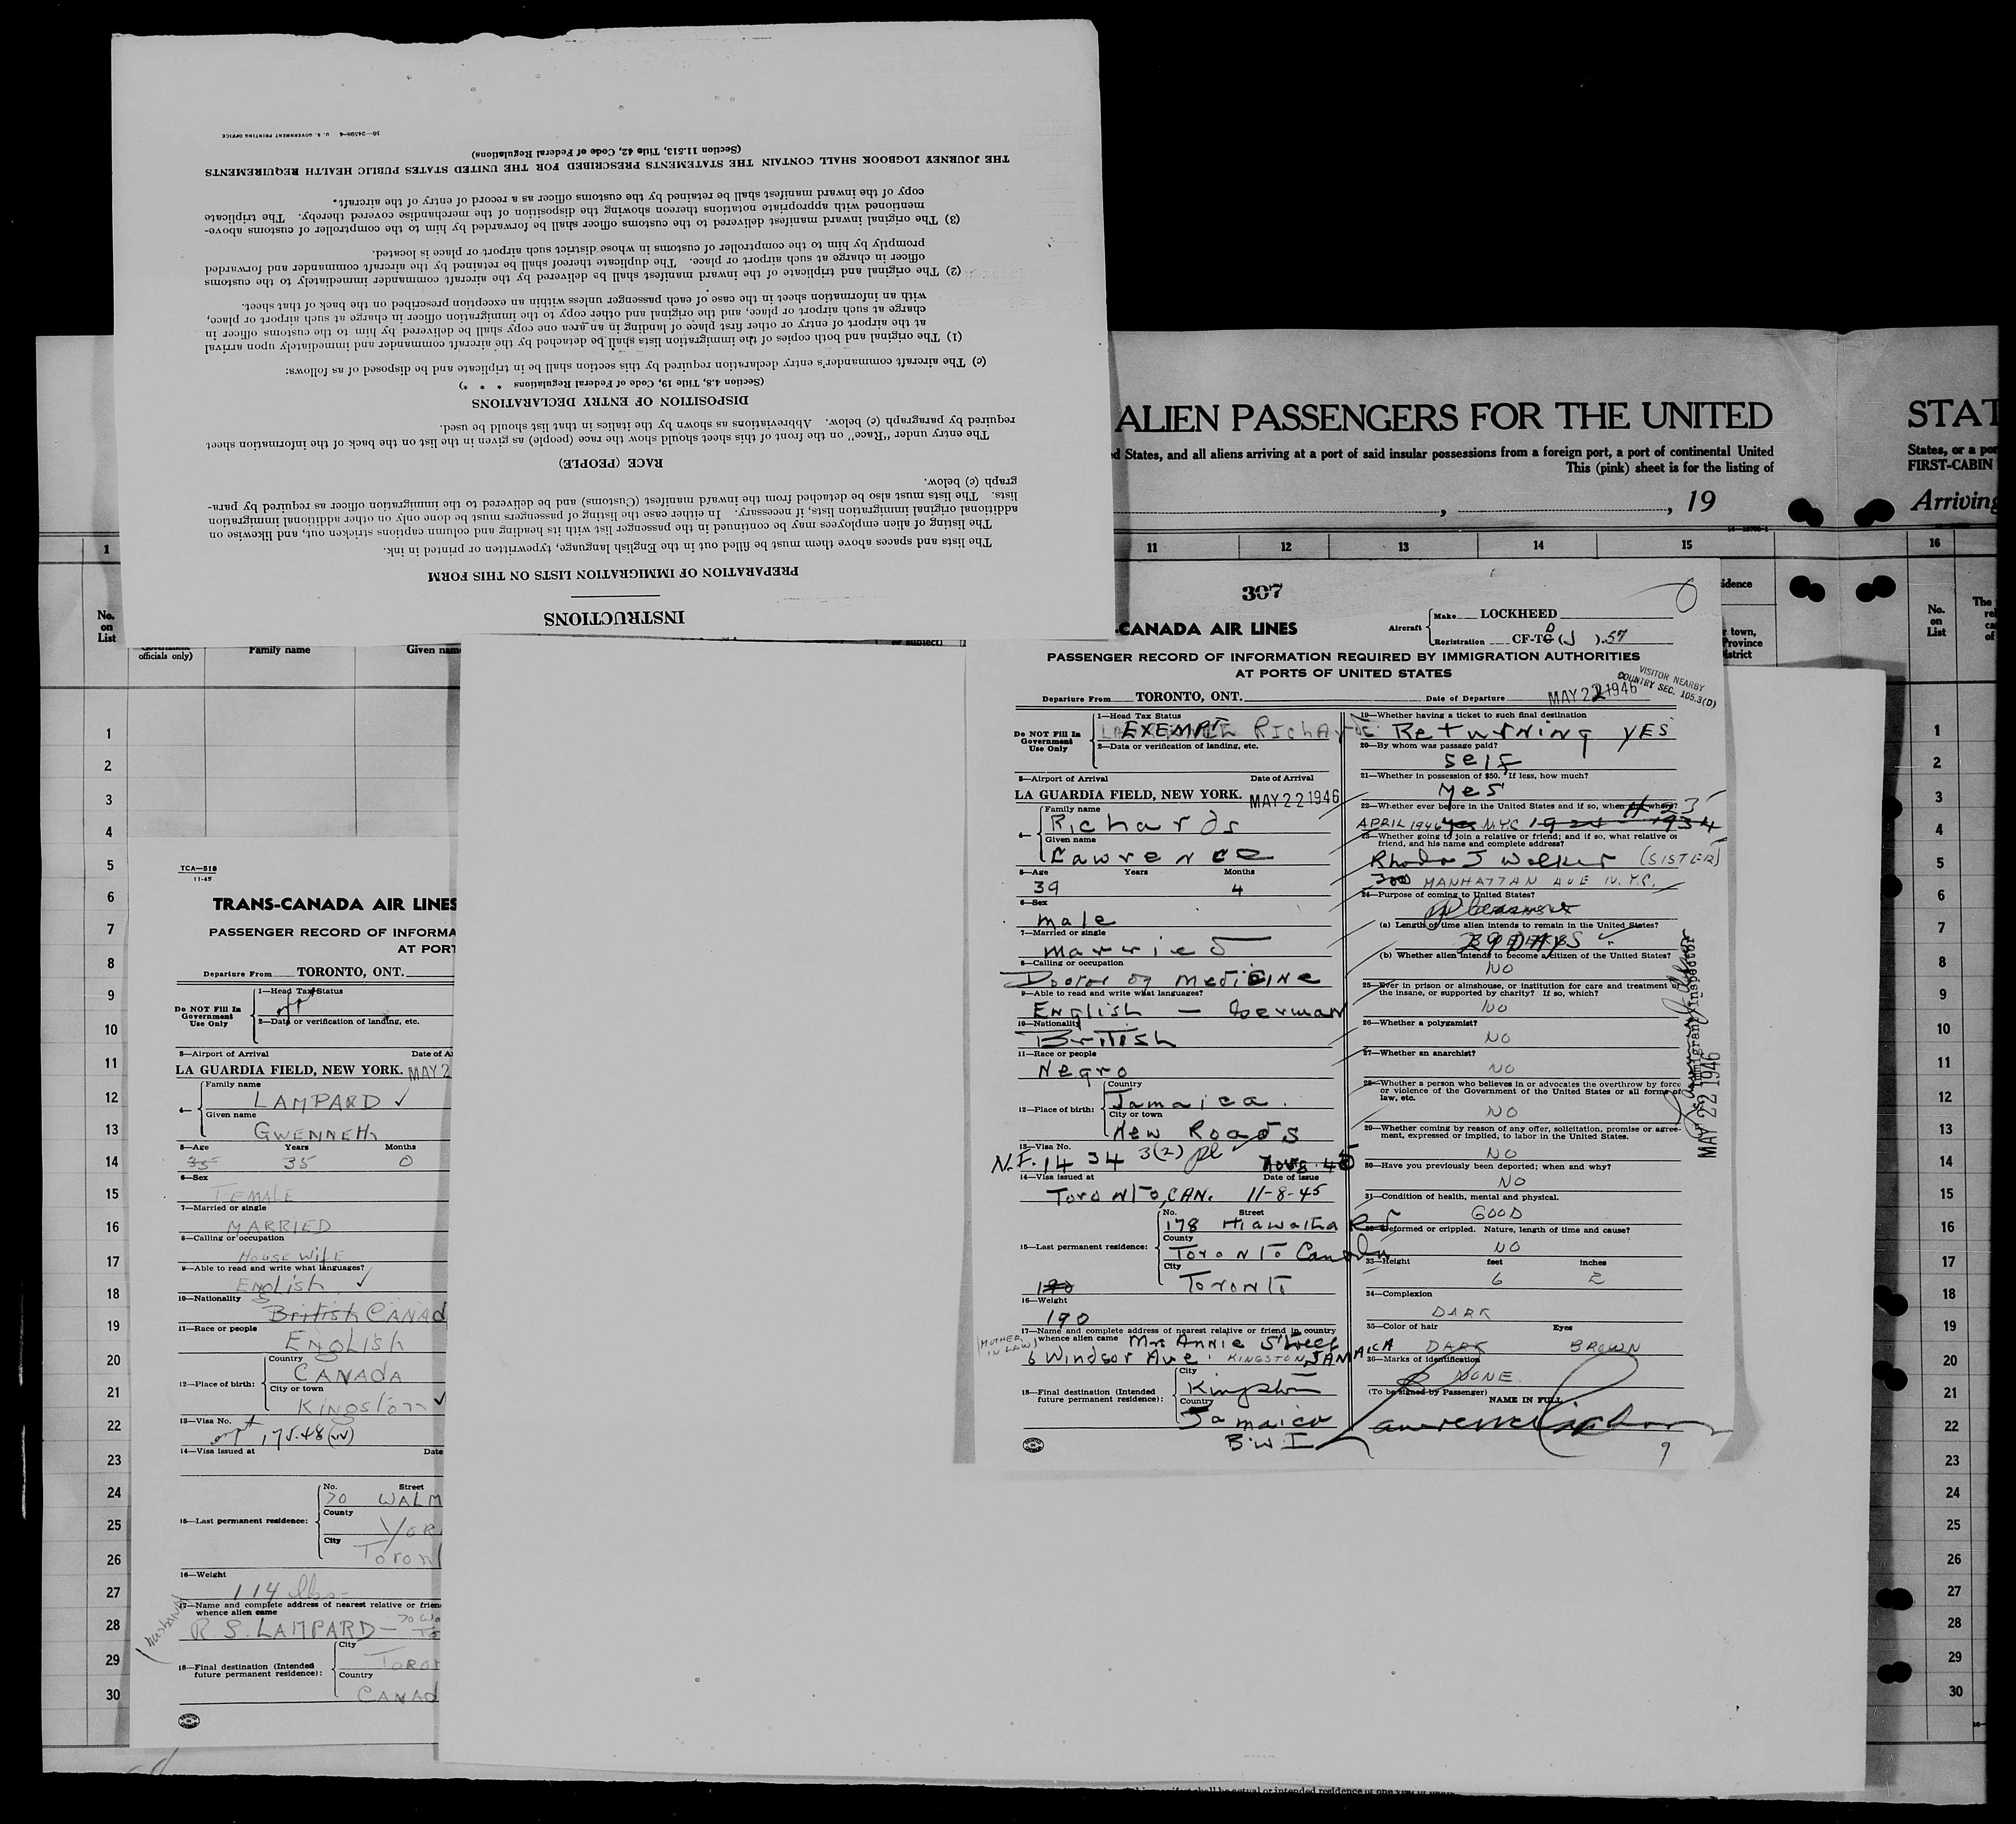 INSTRUCTIONS
PREPARATION OF IMMIGRATION LISTS ON THIS FORM
The lists and spaces above them must be filled out in the English language, typewritten or printed in ink.
The listing of alien employees may be continued in the passenger list with its heading and column captions stricken out, and likewise on
additional original immigration lists, if necessary. In either case the listing of passengers must be done only on other additional immigration
lists. The lists must also be detached from the inward manifest (Customs) and be delivered to the immigration officer as required by para-
graph (c) below.
RACE (PEOPLE)
The entry under "Race" on the front of this sheet should show the race (people) as given in the list on the back of the information sheet
required by paragraph (c) below. Abbreviations as shown by the italics in that list should be used.
DISPOSITION OF ENTRY DECLARATIONS
(Section 4.8, Title 19, Code of Federal Regulations * * *)
(c) The aircraft commander's entry declaration required by this section shall be in triplicate and be disposed of as follows:
(1) The original and both copies of the immigration lists shall be detached by the aircraft commander and immediately upon arrival
at the airport of entry or other first place of landing in an area one copy shall be delivered by him to the customs officer in
charge at such airport or place, and the original and other copy to the immigration officer in charge at such airport or place,
with an information sheet in the case of each passenger unless within an exception prescribed on the back of that sheet.
(2) The original and triplicate of the inward manifest shall be delivered by the aircraft commander immediately to the customs
officer in charge at such airport or place. The duplicate thereof shall be retained by the aircraft commander and forwarded
promptly by him to the comptroller of customs in whose district such airport or place is located.
(3) The original inward manifest delivered to the customs officer shall be forwarded by him to the comptroller of customs above-
mentioned with appropriate notations thereon showing the disposition of the merchandise covered thereby. The triplicate
copy of the inward manifest shall be retained by the customs officer as a record of entry of the aircraft.
THE JOURNEY LOGBOOK SHALL CONTAIN THE STATEMENTS PRESCRIBED FOR THE UNITED STATES PUBLIC HEALTH REQUIREMENTS
(Section 11.513, Title 42, Code of Federal Regulations)
16—24598-4 U. S. GOVERNMENT PRINTING OFFICE
ALIEN PASSENGERS FOR THE UNITED
STAT
d States, and all aliens arriving at a port of said insular possessions from a foreign port, a port of continental United
This (pink) sheet is for the listing of
States, or a por
FIRST-CABIN
, , 19
Arriving
1 11 12 13 14 15 16
No. on List
officials only)
Family name
Given name
or subject)
idence
r town,
Province
istrict
No. on List
The
1
2
3
4
5
6
7
8
9
10
11
12
13
14
15
16
17
18
19
20
21
22
23
24
25
26
27
28
29
30
TCA—518
11-45
TRANS-CANADA AIR LINES
PASSENGER RECORD OF INFORMA
AT PORT
Departure From TORONTO, ONT.
Do NOT Fill In Government Use Only
1—Head Tax Status
2—Data or verification of landing, etc.
3—Airport of Arrival Date of Ar
LA GUARDIA FIELD, NEW YORK. MAY 2
4— Family name
LAMPARD ✓
Given name
GWENNETH
5—Age Years Months
35 35 0
6—Sex
FEMALE
7—Married or single
MARRIED
8—Calling or occupation
HOUSEWIFE
9—Able to read and write what languages?
ENGLISH ✓
10—Nationality
British CANAD
11—Race or people
ENGLISH
12—Place of birth: Country
CANADA
City or town
KINGSTON ✓
13—Visa No.
175.48 (w)
14—Visa issued at Date
15—Last permanent residence: No. Street
70 WALM
County
YOR
City
Toront
16—Weight
114 lbs-
17—Name and complete address of nearest relative or frien
whence alien came
(husband)
R S. LAMPARD —
18—Final destination (Intended future permanent residence): City
TORON
Country
CANAD
307
-CANADA AIR LINES
Aircraft Make LOCKHEED
Registration CF-TG D (J ).57
PASSENGER RECORD OF INFORMATION REQUIRED BY IMMIGRATION AUTHORITIES
AT PORTS OF UNITED STATES
VISITOR NEARBY
COUNTRY SEC. 105.3(D)
Departure From TORONTO, ONT. Date of Departure MAY 22 1946
Do NOT Fill In Government Use Only
1—Head Tax Status
EXEMPT
2—Data or verification of landing, etc.
3—Airport of Arrival Date of Arrival
LA GUARDIA FIELD, NEW YORK. MAY 22 1946
4— Family name
Richards
Given name
Lawrence
5—Age Years Months
39 4
6—Sex
male
7—Married or single
married
8—Calling or occupation
Doctor of Medicine
9—Able to read and write what languages?
English — German
10—Nationality
British
11—Race or people
Negro
12—Place of birth: Country
Jamaica.
City or town
New Roads
13—Visa No.
N.I. 14 34 3(2) pl
14—Visa issued at Date of issue
Toronto, CAN. 11-8-45
15—Last permanent residence: No. Street
178 Hiawatha Rd
County
Toronto Canada
City
Toronto
190
16—Weight
190
17—Name and complete address of nearest relative or friend in country
whence alien came Mrs Annie Street
(MOTHER IN LAW)
6 Windsor Ave. KINGSTON, JAMAICA
18—Final destination (Intended future permanent residence): City
Kingston
Country
Jamaica
B.W.I
19—Whether having a ticket to such final destination
Returning YES
20—By whom was passage paid?
self
21—Whether in possession of $50. If less, how much?
yes
22—Whether ever before in the United States and if so, when and where?
APRIL 1946 yes N.Y.C 1934
23—Whether going to join a relative or friend; and if so, what relative or
friend, and his name and complete address?
Rhoda J Walker (SISTER)
300 MANHATTAN AVE N.Y.C.
24—Purpose of coming to United States?
Pleasure
(a) Length of time alien intends to remain in the United States?
29 DAYS
(b) Whether alien intends to become a citizen of the United States?
NO
25—Ever in prison or almshouse, or institution for care and treatment of
the insane, or supported by charity? If so, which?
NO
26—Whether a polygamist?
NO
27—Whether an anarchist?
NO
28—Whether a person who believes in or advocates the overthrow by force
or violence of the Government of the United States or all forms of
law, etc.
NO
29—Whether coming by reason of any offer, solicitation, promise or agree-
ment, expressed or implied, to labor in the United States.
NO
30—Have you previously been deported; when and why?
NO
31—Condition of health, mental and physical.
GOOD
32—Deformed or crippled. Nature, length of time and cause?
NO
33—Height feet inches
6 2
34—Complexion
DARK
35—Color of hair Eyes
DARK BROWN
36—Marks of identification
NONE
(To be signed by Passenger)
NAME IN FULL
Lawrence Richards
9
Immigrant Inspector
MAY 22 1946